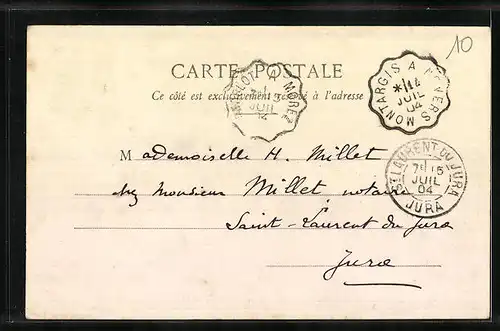 10
CARTE POSTALE
Ce côté est exclusivement réservé à l'adresse
MONTARGIS A NEVERS
*/14
JUIL
04
A MOREZ
15
JUIL
04
Mademoiselle H. Millet
chez Monsieur Millet notaire
Saint-Laurent du Jura
Jura
ST LAURENT-DU-JURA
7E 15
JUIL
04
JURA